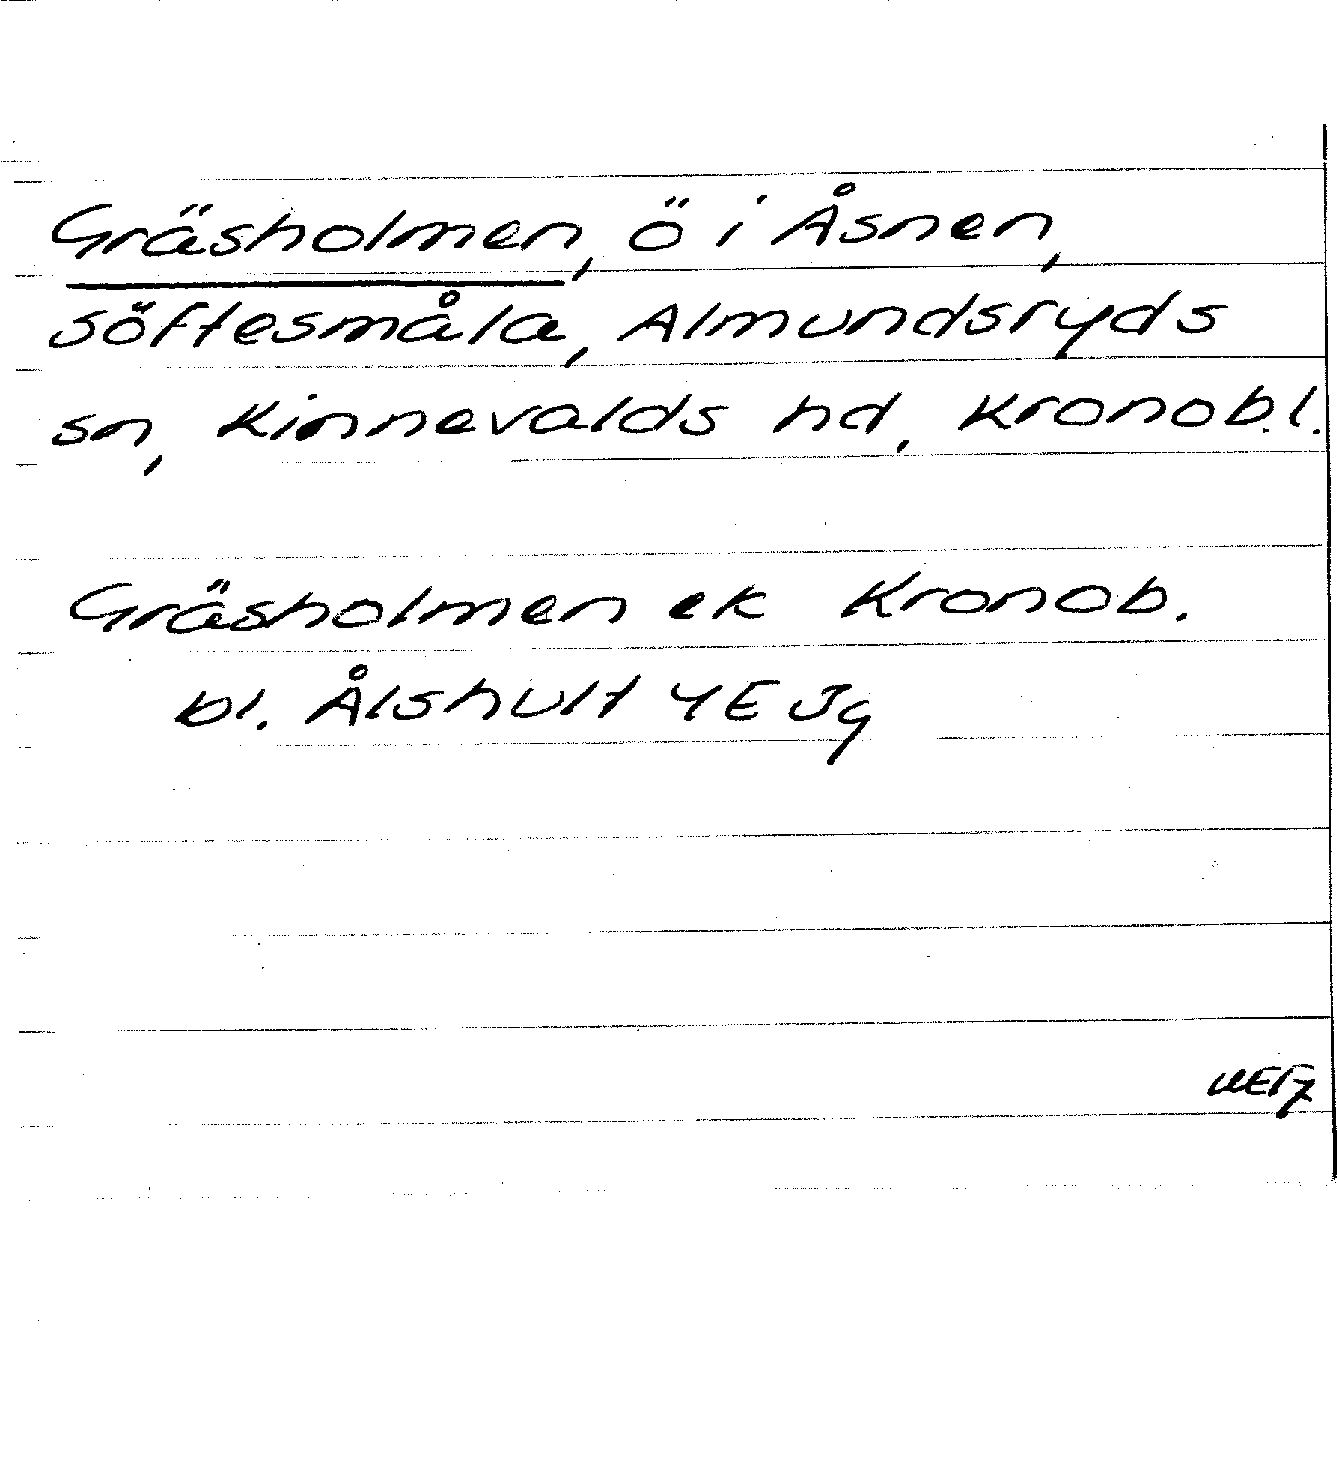 Gräsholmen, ö i Åsnen,
Söftesmåla, Almundsryds
sn, Kinnevalds hd, Kronob.l.
Gräsholmen ek Kronob.
bl. Ålshult 4E Jg